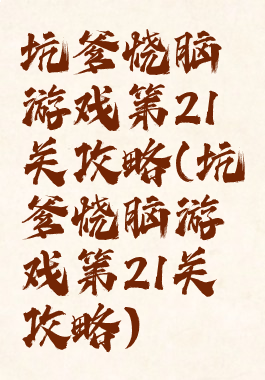 坑爹烧脑
游戏第21
关攻略(坑
爹烧脑游
戏第21关
攻略)